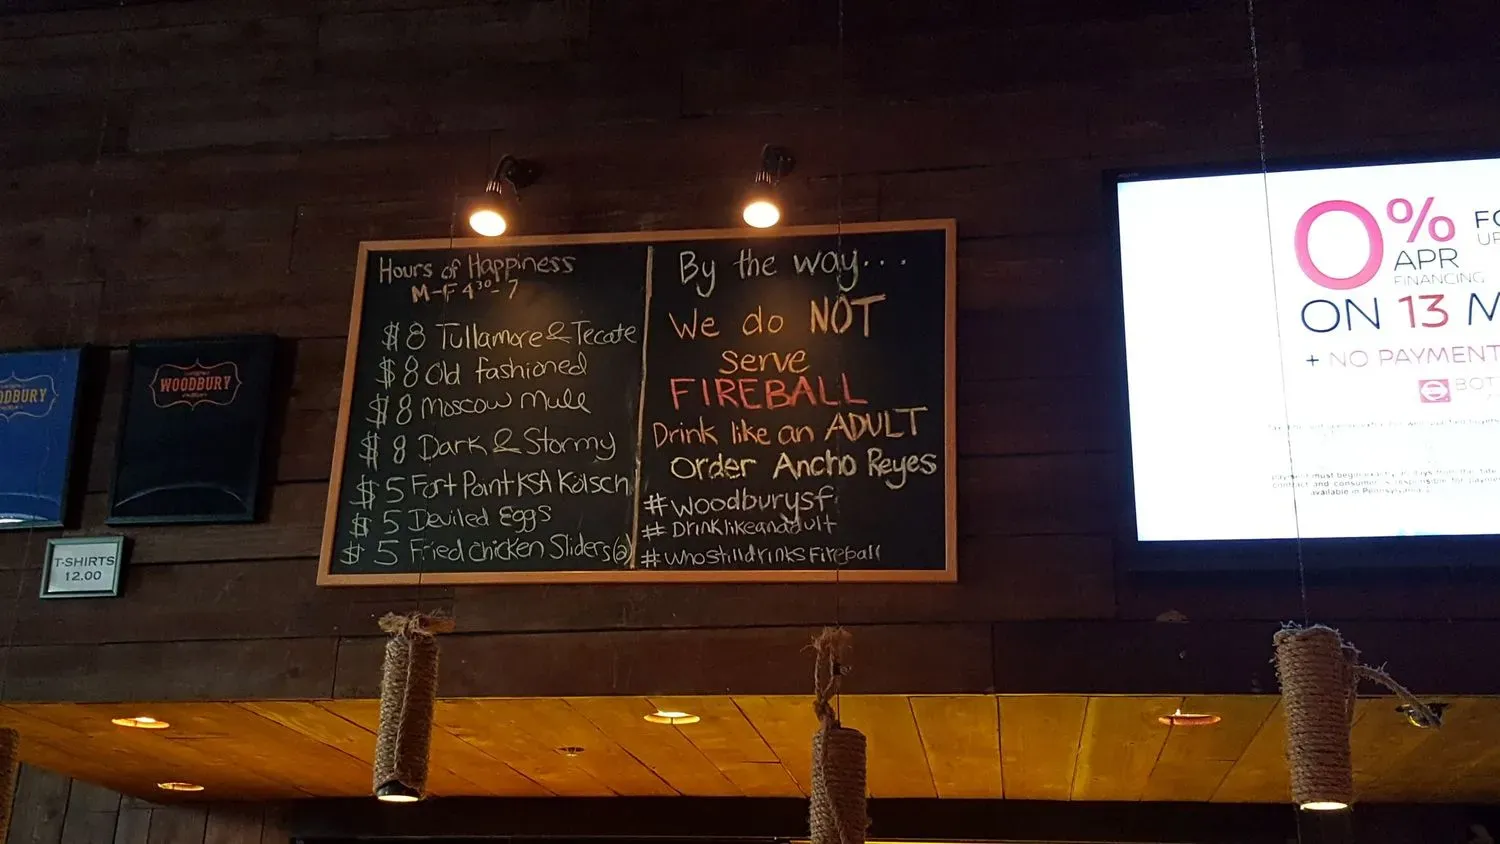 Hours of Happiness
M-F 4³⁰-7
$8 Tullamore & Tecate
$8 Old fashioned
$8 Moscow Mule
$8 Dark & Stormy
$5 Fort Point KSA Kolsch
$5 Deviled Eggs
$5 Fried chicken Sliders (2)
By the way...
We do NOT
serve
FIREBALL
Drink like an ADULT
Order Ancho Reyes
#woodburysf
#Drinklikeanadult
#whostilldrinksFireball
DBURY
WOODBURY
T-SHIRTS
12.00
0% APR
FINANCING
ON 13 M
+ NO PAYMENT
BOT
payment must begin exactly
available in Pennsylvania